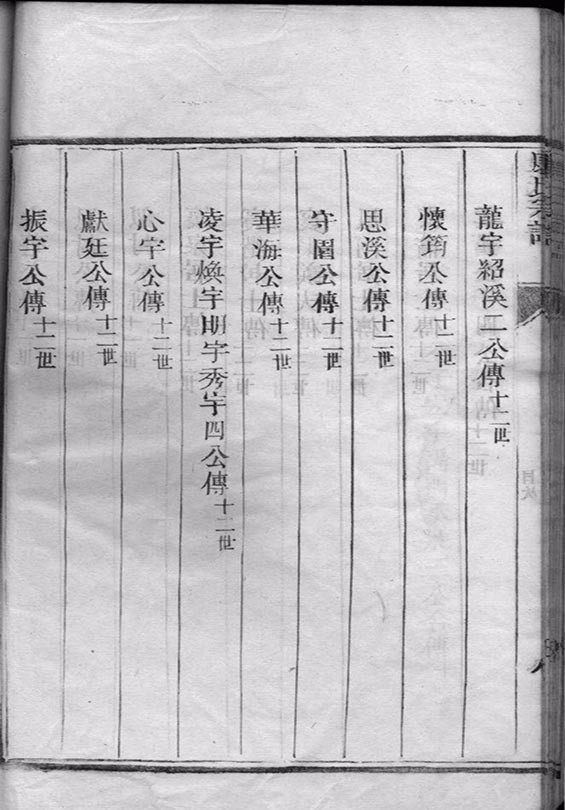 氏宗譜
龍宇紹溪二公傳十二世
懷筠公傳十二世
思溪公傳十二世
守園公傳十二世
華海公傳十二世
凌宇煥宇明宇秀宇四公傳十二世
心宇公傳十二世
獻廷公傳十二世
振宇公傳十二世